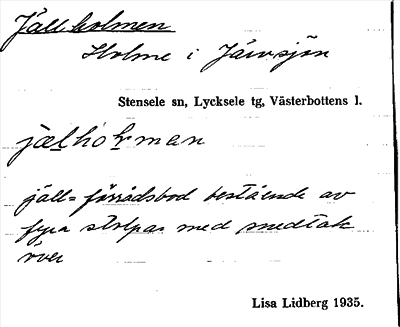 Jällholmen
Holme i Järvsjön
Stensele sn, Lycksele tg, Västerbottens l.
jælholman
jäll = förrådsbod bestående av
fyra stolpar med snedtak
över
Lisa Lidberg 1935.